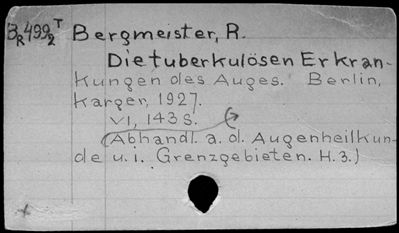 BR499 2 T Bergmeister, R.
Die tuberkulösen Erkran-
kungen des Auges. Berlin,
Karger, 1927.
VI, 143 S.
(Abhandl. a. d. Augenheilkun-
de u. i. Grenzgebieten. H. 3.)